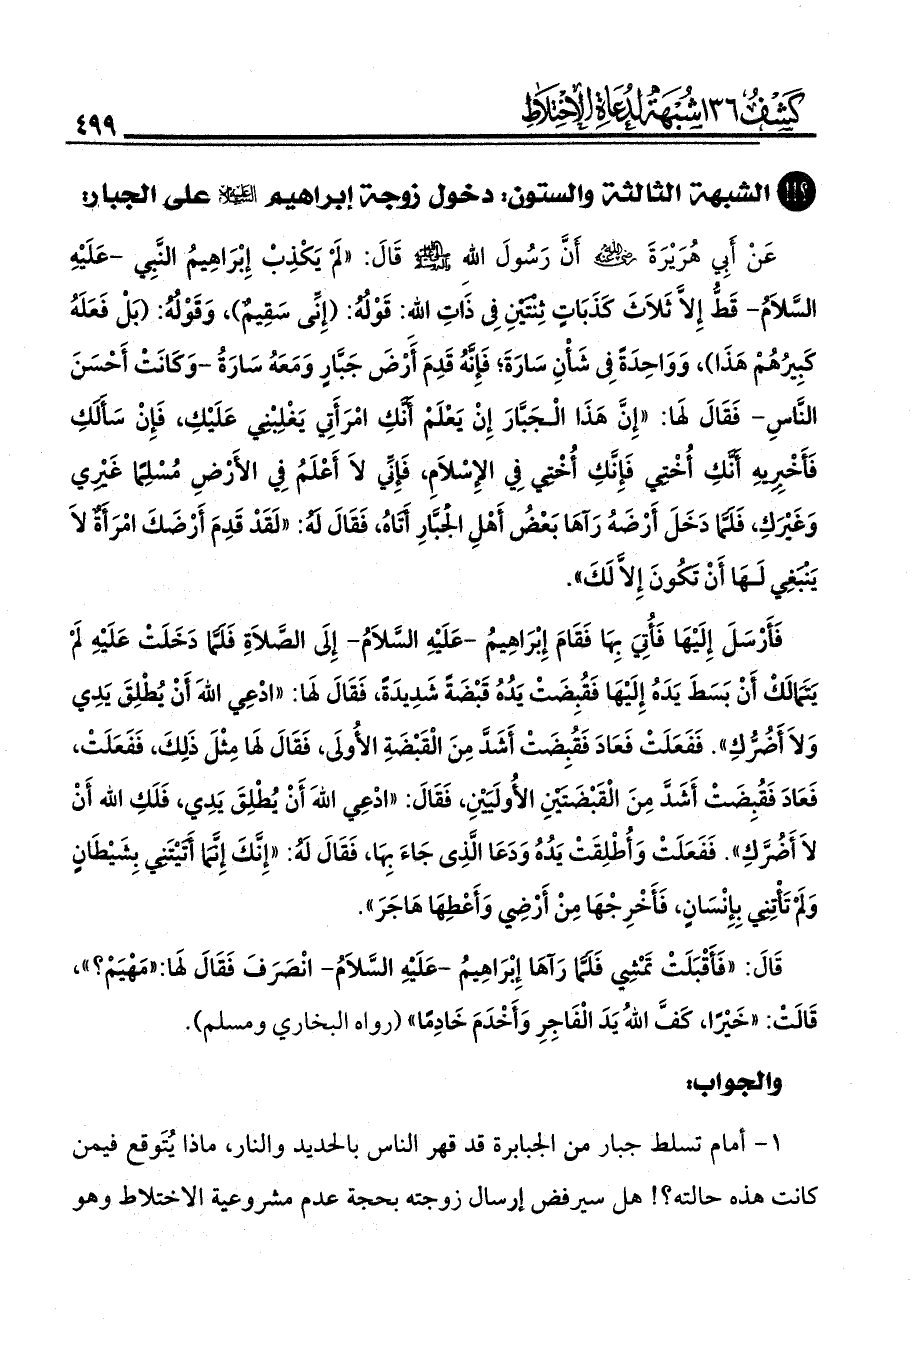 كشف ١٣٦ شبهة لدعاة الاختلاط
٤٩٩
الشبهة الثالثة والستون: دخول زوجة إبراهيم عليه السلام على الجبار:
عَنْ أَبِي هُرَيْرَةَ رضي الله عنه أَنَّ رَسُولَ اللهِ ﷺ قَالَ: «لَمْ يَكْذِبْ إِبْرَاهِيمُ النَّبِي -عَلَيْهِ
السَّلاَمُ- قَطُّ إِلاَّ ثَلاَثَ كَذَبَاتٍ ثِنْتَيْنِ فِى ذَاتِ الله: قَوْلُهُ: (إِنِّى سَقِيمٌ)، وَقَوْلُهُ: (بَلْ فَعَلَهُ
كَبِيرُهُمْ هَذَا)، وَوَاحِدَةً فِى شَأْنِ سَارَةَ؛ فَإِنَّهُ قَدِمَ أَرْضَ جَبَّارٍ وَمَعَهُ سَارَةُ -وَكَانَتْ أَحْسَنَ
النَّاسِ- فَقَالَ لَهَا: «إِنَّ هَذَا الْـجَبَّارَ إِنْ يَعْلَمْ أَنَّكِ امْرَأَتِي يَغْلِبْنِي عَلَيْكِ، فَإِنْ سَأَلَكِ
فَأَخْبِرِيهِ أَنَّكِ أُخْتِي فَإِنَّكِ أُخْتِي فِي الإِسْلاَمِ، فَإِنِّي لاَ أَعْلَمُ فِي الأَرْضِ مُسْلِمًا غَيْرِي
وَغَيْرَكِ، فَلَمَّا دَخَلَ أَرْضَهُ رَآهَا بَعْضُ أَهْلِ الْجَبَّارِ أَتَاهُ، فَقَالَ لَهُ: «لَقَدْ قَدِمَ أَرْضَكَ امْرَأَةٌ لاَ
يَنْبَغِي لَـهَا أَنْ تَكُونَ إِلاَّ لَكَ».
فَأَرْسَلَ إِلَيْهَا فَأُتِيَ بِهَا فَقَامَ إِبْرَاهِيمُ -عَلَيْهِ السَّلاَمُ- إِلَى الصَّلاَةِ فَلَمَّا دَخَلَتْ عَلَيْهِ لَمْ
يَتَمَالَكْ أَنْ بَسَطَ يَدَهُ إِلَيْهَا فَقُبِضَتْ يَدُهُ قَبْضَةً شَدِيدَةً، فَقَالَ لَهَا: «ادْعِي اللهَ أَنْ يُطْلِقَ يَدِي
وَلاَ أَضُرُّكِ». فَفَعَلَتْ فَعَادَ فَقُبِضَتْ أَشَدَّ مِنَ الْقَبْضَةِ الأُولَى، فَقَالَ لَهَا مِثْلَ ذَلِكَ، فَفَعَلَتْ،
فَعَادَ فَقُبِضَتْ أَشَدَّ مِنَ الْقَبْضَتَيْنِ الأُولَيَيْنِ، فَقَالَ: «ادْعِي اللهَ أَنْ يُطْلِقَ يَدِي، فَلَكِ الله أَنْ
لاَ أَضُرَّكِ». فَفَعَلَتْ وَأُطْلِقَتْ يَدُهُ وَدَعَا الَّذِى جَاءَ بِهَا، فَقَالَ لَهُ: «إِنَّكَ إِنَّمَا أَتَيْتَنِي بِشَيْطَانٍ
وَلَمْ تَأْتِنِي بِإِنْسَانٍ، فَأَخْرِجْهَا مِنْ أَرْضِي وَأَعْطِهَا هَاجَرَ».
قَالَ: «فَأَقْبَلَتْ تَمْشِي فَلَمَّا رَآهَا إِبْرَاهِيمُ -عَلَيْهِ السَّلاَمُ- انْصَرَفَ فَقَالَ لَهَا:«مَهْيَمْ؟»،
قَالَتْ: «خَيْرًا، كَفَّ اللهُ يَدَ الْفَاجِرِ وَأَخْدَمَ خَادِمًا» (رواه البخاري ومسلم).
والجواب:
١- أمام تسلط جبار من الجبابرة قد قهر الناس بالحديد والنار، ماذا يُتَوقع فيمن
كانت هذه حالته؟! هل سيرفض إرسال زوجته بحجة عدم مشروعية الاختلاط وهو